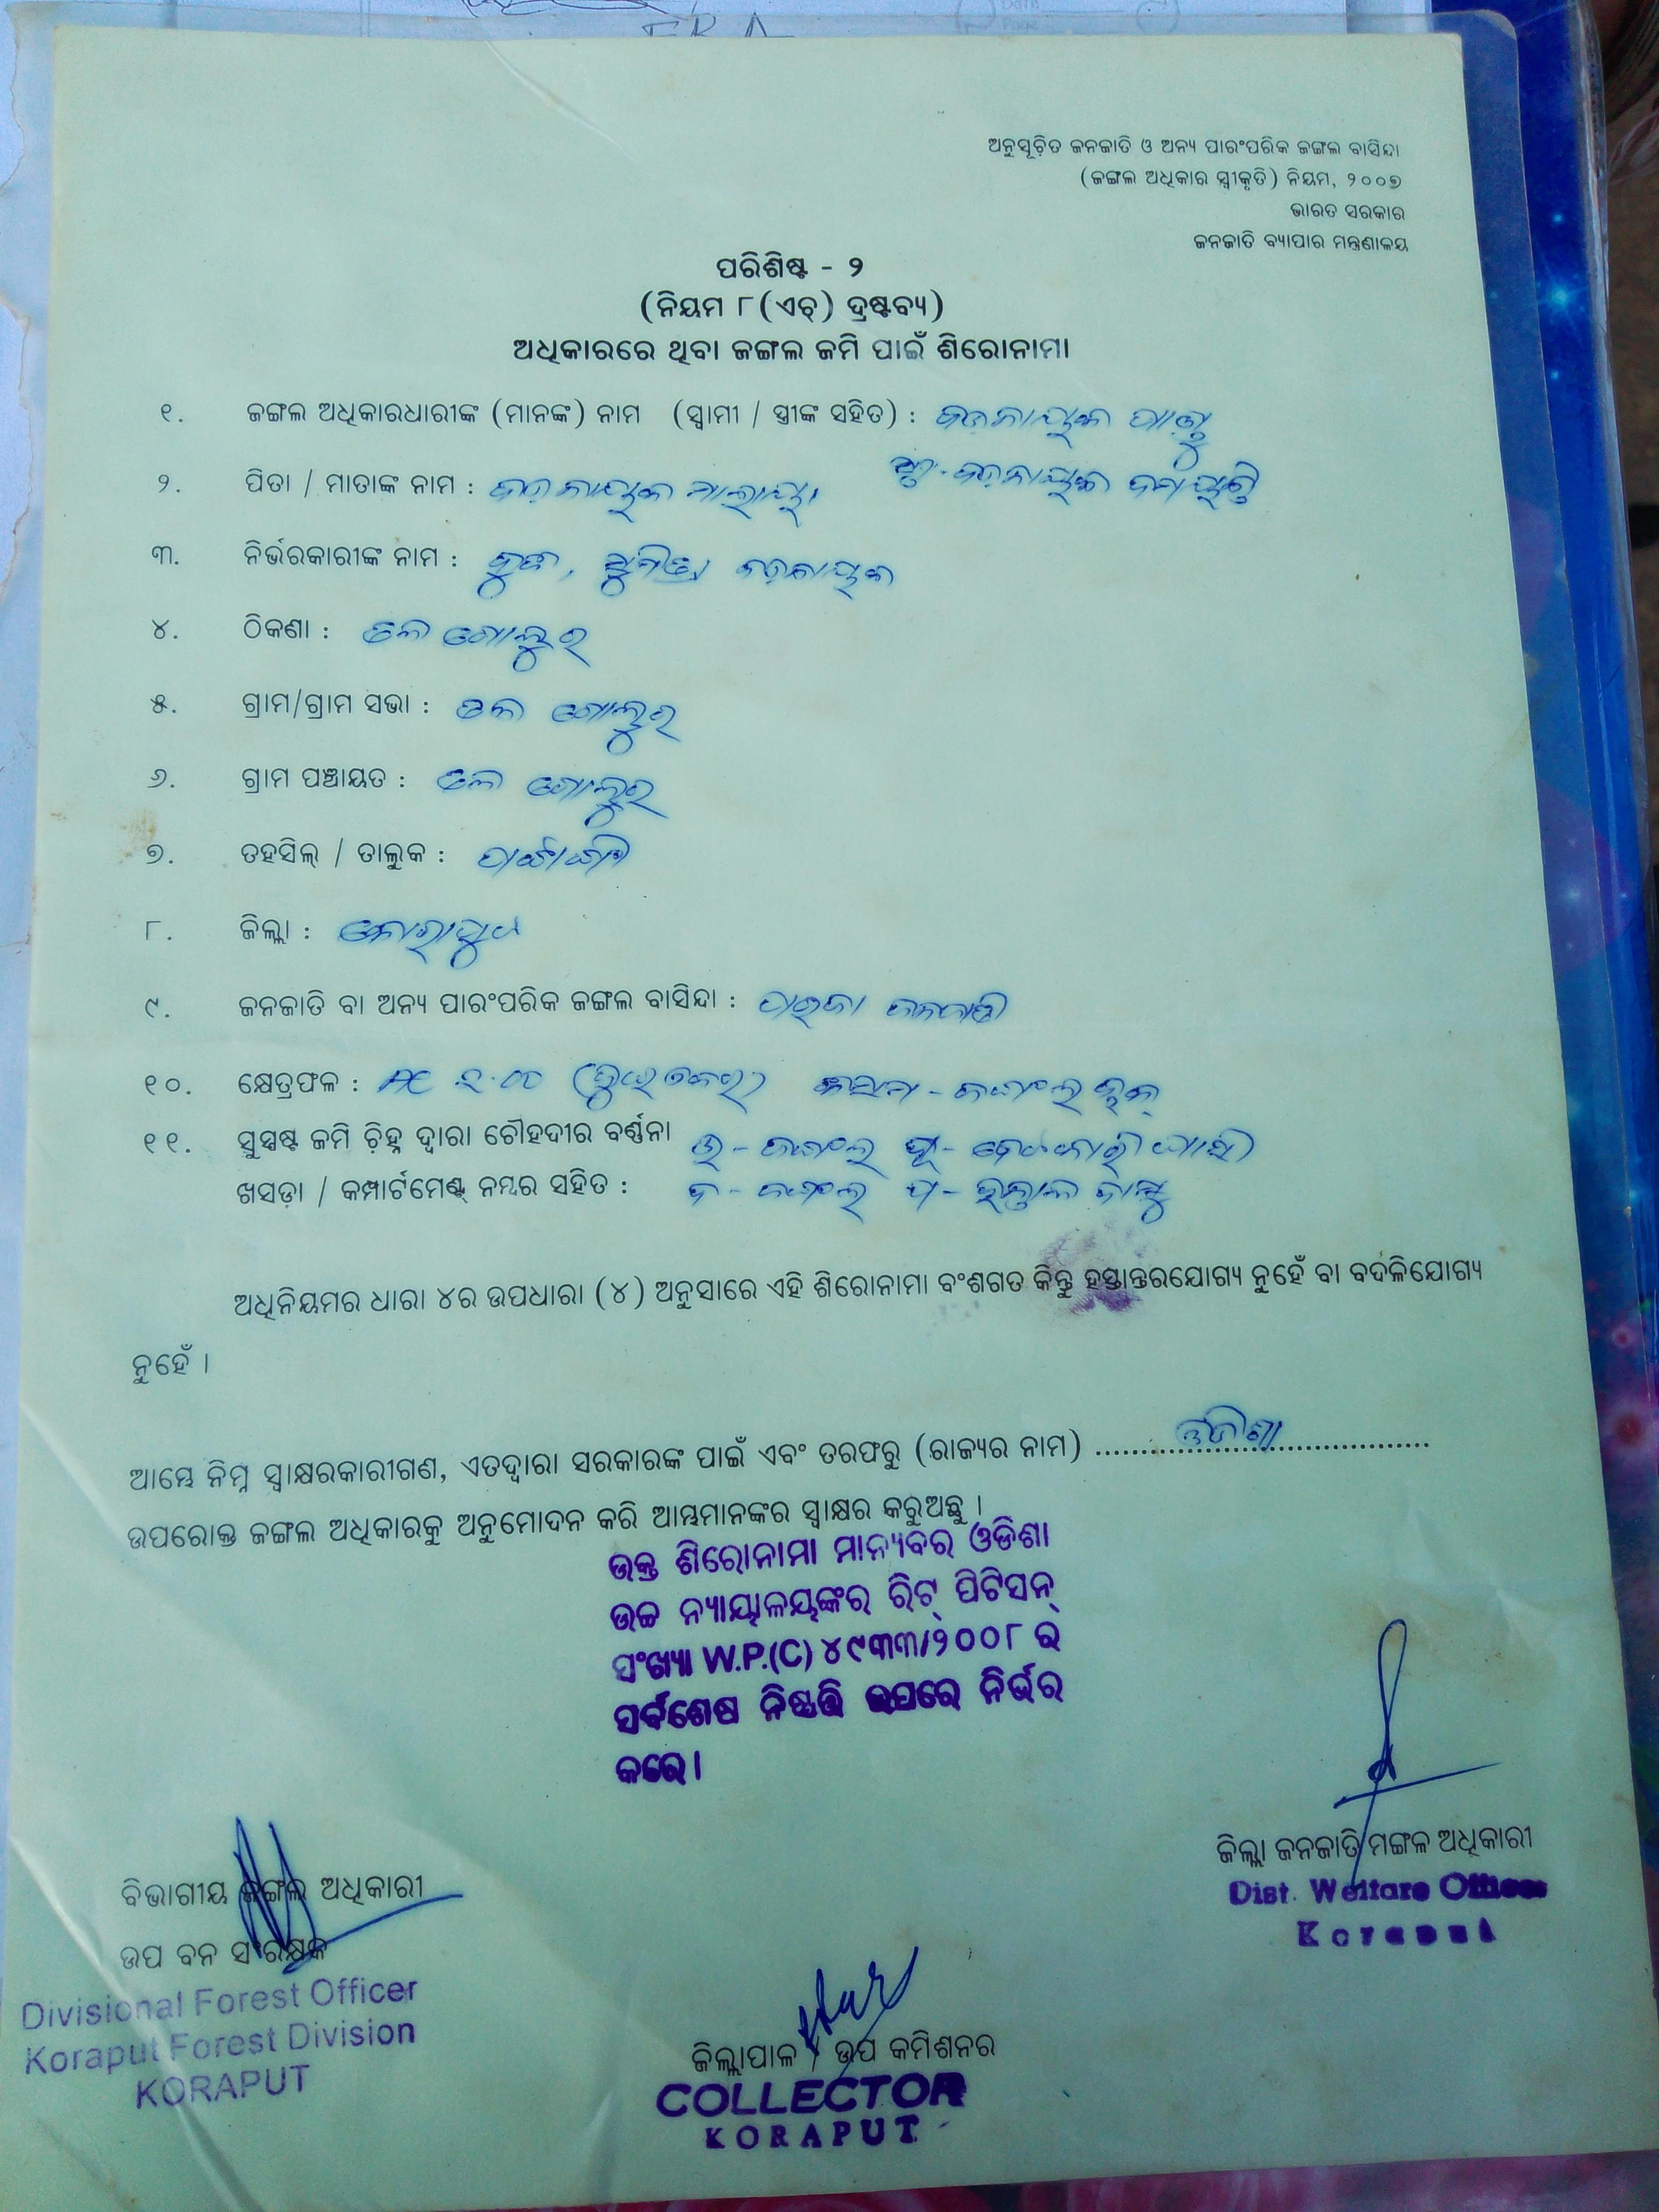 ଅନୁସୂଚିତ ଜନଜାତି ଓ ଅନ୍ୟ ପାରଂପରିକ ଜଙ୍ଗଲ ବାସିନ୍ଦା
(ଜଙ୍ଗଲ ଅଧିକାର ସ୍ଵୀକୃତି) ନିୟମ, ୨୦୦୭
ଭାରତ ସରକାର
ଜନଜାତି ବ୍ୟାପାର ମନ୍ତ୍ରଣାଳୟ
ପରିଶିଷ୍ଟ - ୨
(ନିୟମ ୮(ଏଚ୍) ଦ୍ରଷ୍ଟବ୍ୟ)
ଅଧିକାରରେ ଥିବା ଜଙ୍ଗଲ ଜମି ପାଇଁ ଶିରୋନାମା
୧. ଜଙ୍ଗଲ ଅଧିକାରଧାରୀଙ୍କ (ମାନଙ୍କ) ନାମ (ସ୍ଵାମୀ / ସ୍ତ୍ରୀଙ୍କ ସହିତ) : ବଡ଼ନାୟକ
୨. ପିତା / ମାତାଙ୍କ ନାମ : ବଡ଼ନାୟକ ବଡ଼ନାୟକ
୩. ନିର୍ଭରକାରୀଙ୍କ ନାମ : ସୁମିତ୍ରା ବଡ଼ନାୟକ
୪. ଠିକଣା : ତଳ ଗୋଲୁର
୫. ଗ୍ରାମ/ଗ୍ରାମ ସଭା : ତଳ ଗୋଲୁର
୬. ଗ୍ରାମ ପଞ୍ଚାୟତ : ତଳ ଗୋଲୁର
୭. ତହସିଲ୍ / ତାଲୁକ :
୮. ଜିଲ୍ଲା : କୋରାପୁଟ
୯. ଜନଜାତି ବା ଅନ୍ୟ ପାରଂପରିକ ଜଙ୍ଗଲ ବାସିନ୍ଦା : ପାରଜା ଜନଜାତି
୧୦. କ୍ଷେତ୍ରଫଳ : AC ୨.୦୦ (ଦୁଇ ଏକର)
୧୧. ସୁସ୍ପଷ୍ଟ ଜମି ଚିହ୍ନ ଦ୍ଵାରା ଚୌହଦୀର ବର୍ଣ୍ଣନା ଉ - ଜଙ୍ଗଲ ପୂ -
ଖସଡ଼ା / କମ୍ପାର୍ଟମେଣ୍ଟ ନମ୍ବର ସହିତ : ଦ - ଜଙ୍ଗଲ ପ -
ଅଧିନିୟମର ଧାରା ୪ର ଉପଧାରା (୪) ଅନୁସାରେ ଏହି ଶିରୋନାମା ବଂଶଗତ କିନ୍ତୁ ହସ୍ତାନ୍ତରଯୋଗ୍ୟ ନୁହେଁ ବା ବଦଳିଯୋଗ୍ୟ
ନୁହେଁ ।
ଆମ୍ଭେ ନିମ୍ନ ସ୍ଵାକ୍ଷରକାରୀଗଣ, ଏତଦ୍ଵାରା ସରକାରଙ୍କ ପାଇଁ ଏବଂ ତରଫରୁ (ରାଜ୍ୟର ନାମ) ଓଡିଶା
ଉପରୋକ୍ତ ଜଙ୍ଗଲ ଅଧିକାରକୁ ଅନୁମୋଦନ କରି ଆମ୍ଭମାନଙ୍କର ସ୍ଵାକ୍ଷର କରୁଅଛୁ ।
ଉକ୍ତ ଶିରୋନାମା ମାନ୍ୟବର ଓଡିଶା
ଉଚ୍ଚ ନ୍ୟାୟାଳୟଙ୍କର ରିଟ୍ ପିଟିସନ୍
ସଂଖ୍ୟା W.P.(C) ୪୯୩୩/୨୦୦୮ ର
ସର୍ବଶେଷ ନିଷ୍ପତ୍ତି ଉପରେ ନିର୍ଭର
କରେ।
ଜିଲ୍ଲା ଜନଜାତି ମଙ୍ଗଳ ଅଧିକାରୀ
Dist. Welfare Officer
Koraput
ବିଭାଗୀୟ ଜଙ୍ଗଲ ଅଧିକାରୀ
ଉପ ବନ ସଂରକ୍ଷକ
Divisional Forest Officer
Koraput Forest Division
KORAPUT
ଜିଲ୍ଲାପାଳ / ଉପ କମିଶନର
COLLECTOR
KORAPUT